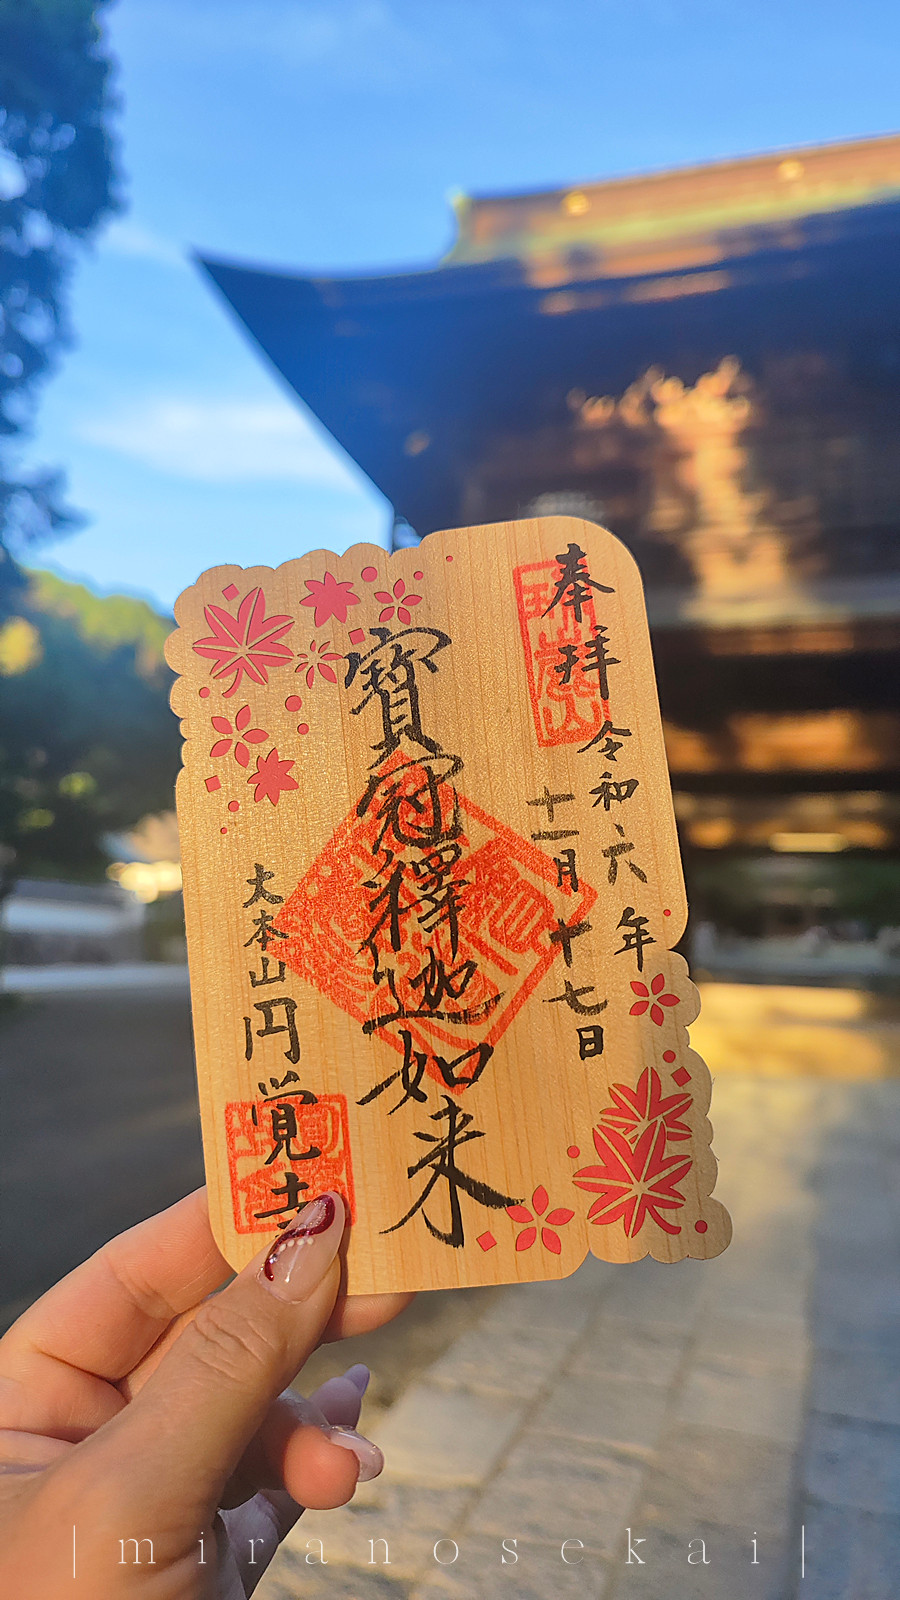 奉拝
令和六年
十一月十七日
寶冠釋迦如来
大本山円覚寺
|miranosekai|